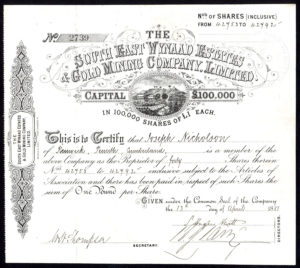 Nos. OF SHARES (INCLUSIVE)
FROM 42953 TO 42992
No. 2739
THE
SOUTH EAST WYNAAD ESTATES
& GOLD MINING COMPANY, LIMITED.
CAPITAL £100,000
IN 100,000 SHARES OF £1 EACH.
This is to Certify that Joseph Nicholson
of Cumberland, is a member of the
above Company as the Proprietor of forty Shares therein
Nos 42953 to 42992 inclusive subject to the Articles of
Association and there has been paid in respect of such Shares the
sum of One Pound per Share.
GIVEN under the Common Seal of the Company
the 13th day of April 1881
DIRECTORS.
SECRETARY.
THE
SOUTH EAST WYNAAD ESTATES
& GOLD MINING COMPANY,
LIMITED